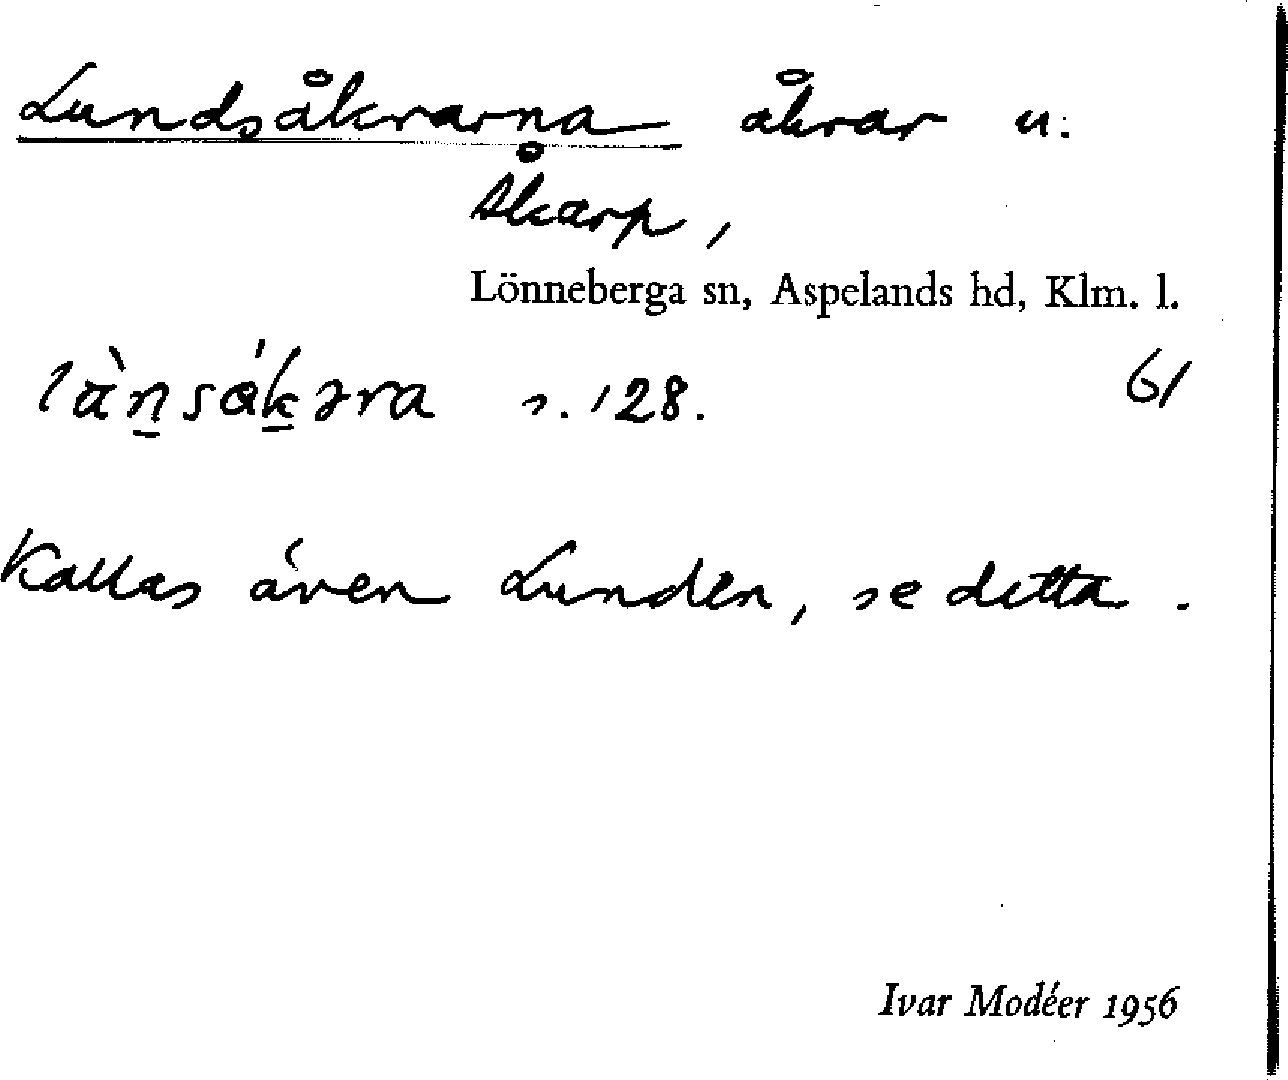 Lundsåkrarna åkrar u.
Åkarp,
Lönneberga sn, Aspelands hd, Klm. l.
s. 128. 61
Kallas även Lunden, se detta.
Ivar Modéer 1956